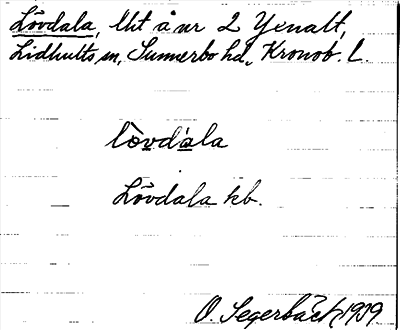 Lövdala, lht å nr 2 Yxnalt,
Lidhults sn, Sunnerbo hd, Kronob. l.
lòvdàla
Lövdala kb.
O. Segerbäck, 1929